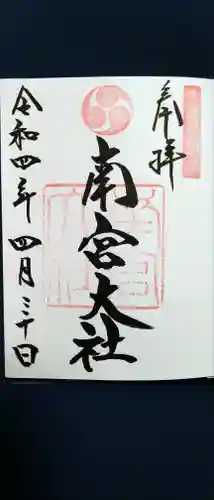 奉拝
南宮大社
令和四年四月三十日